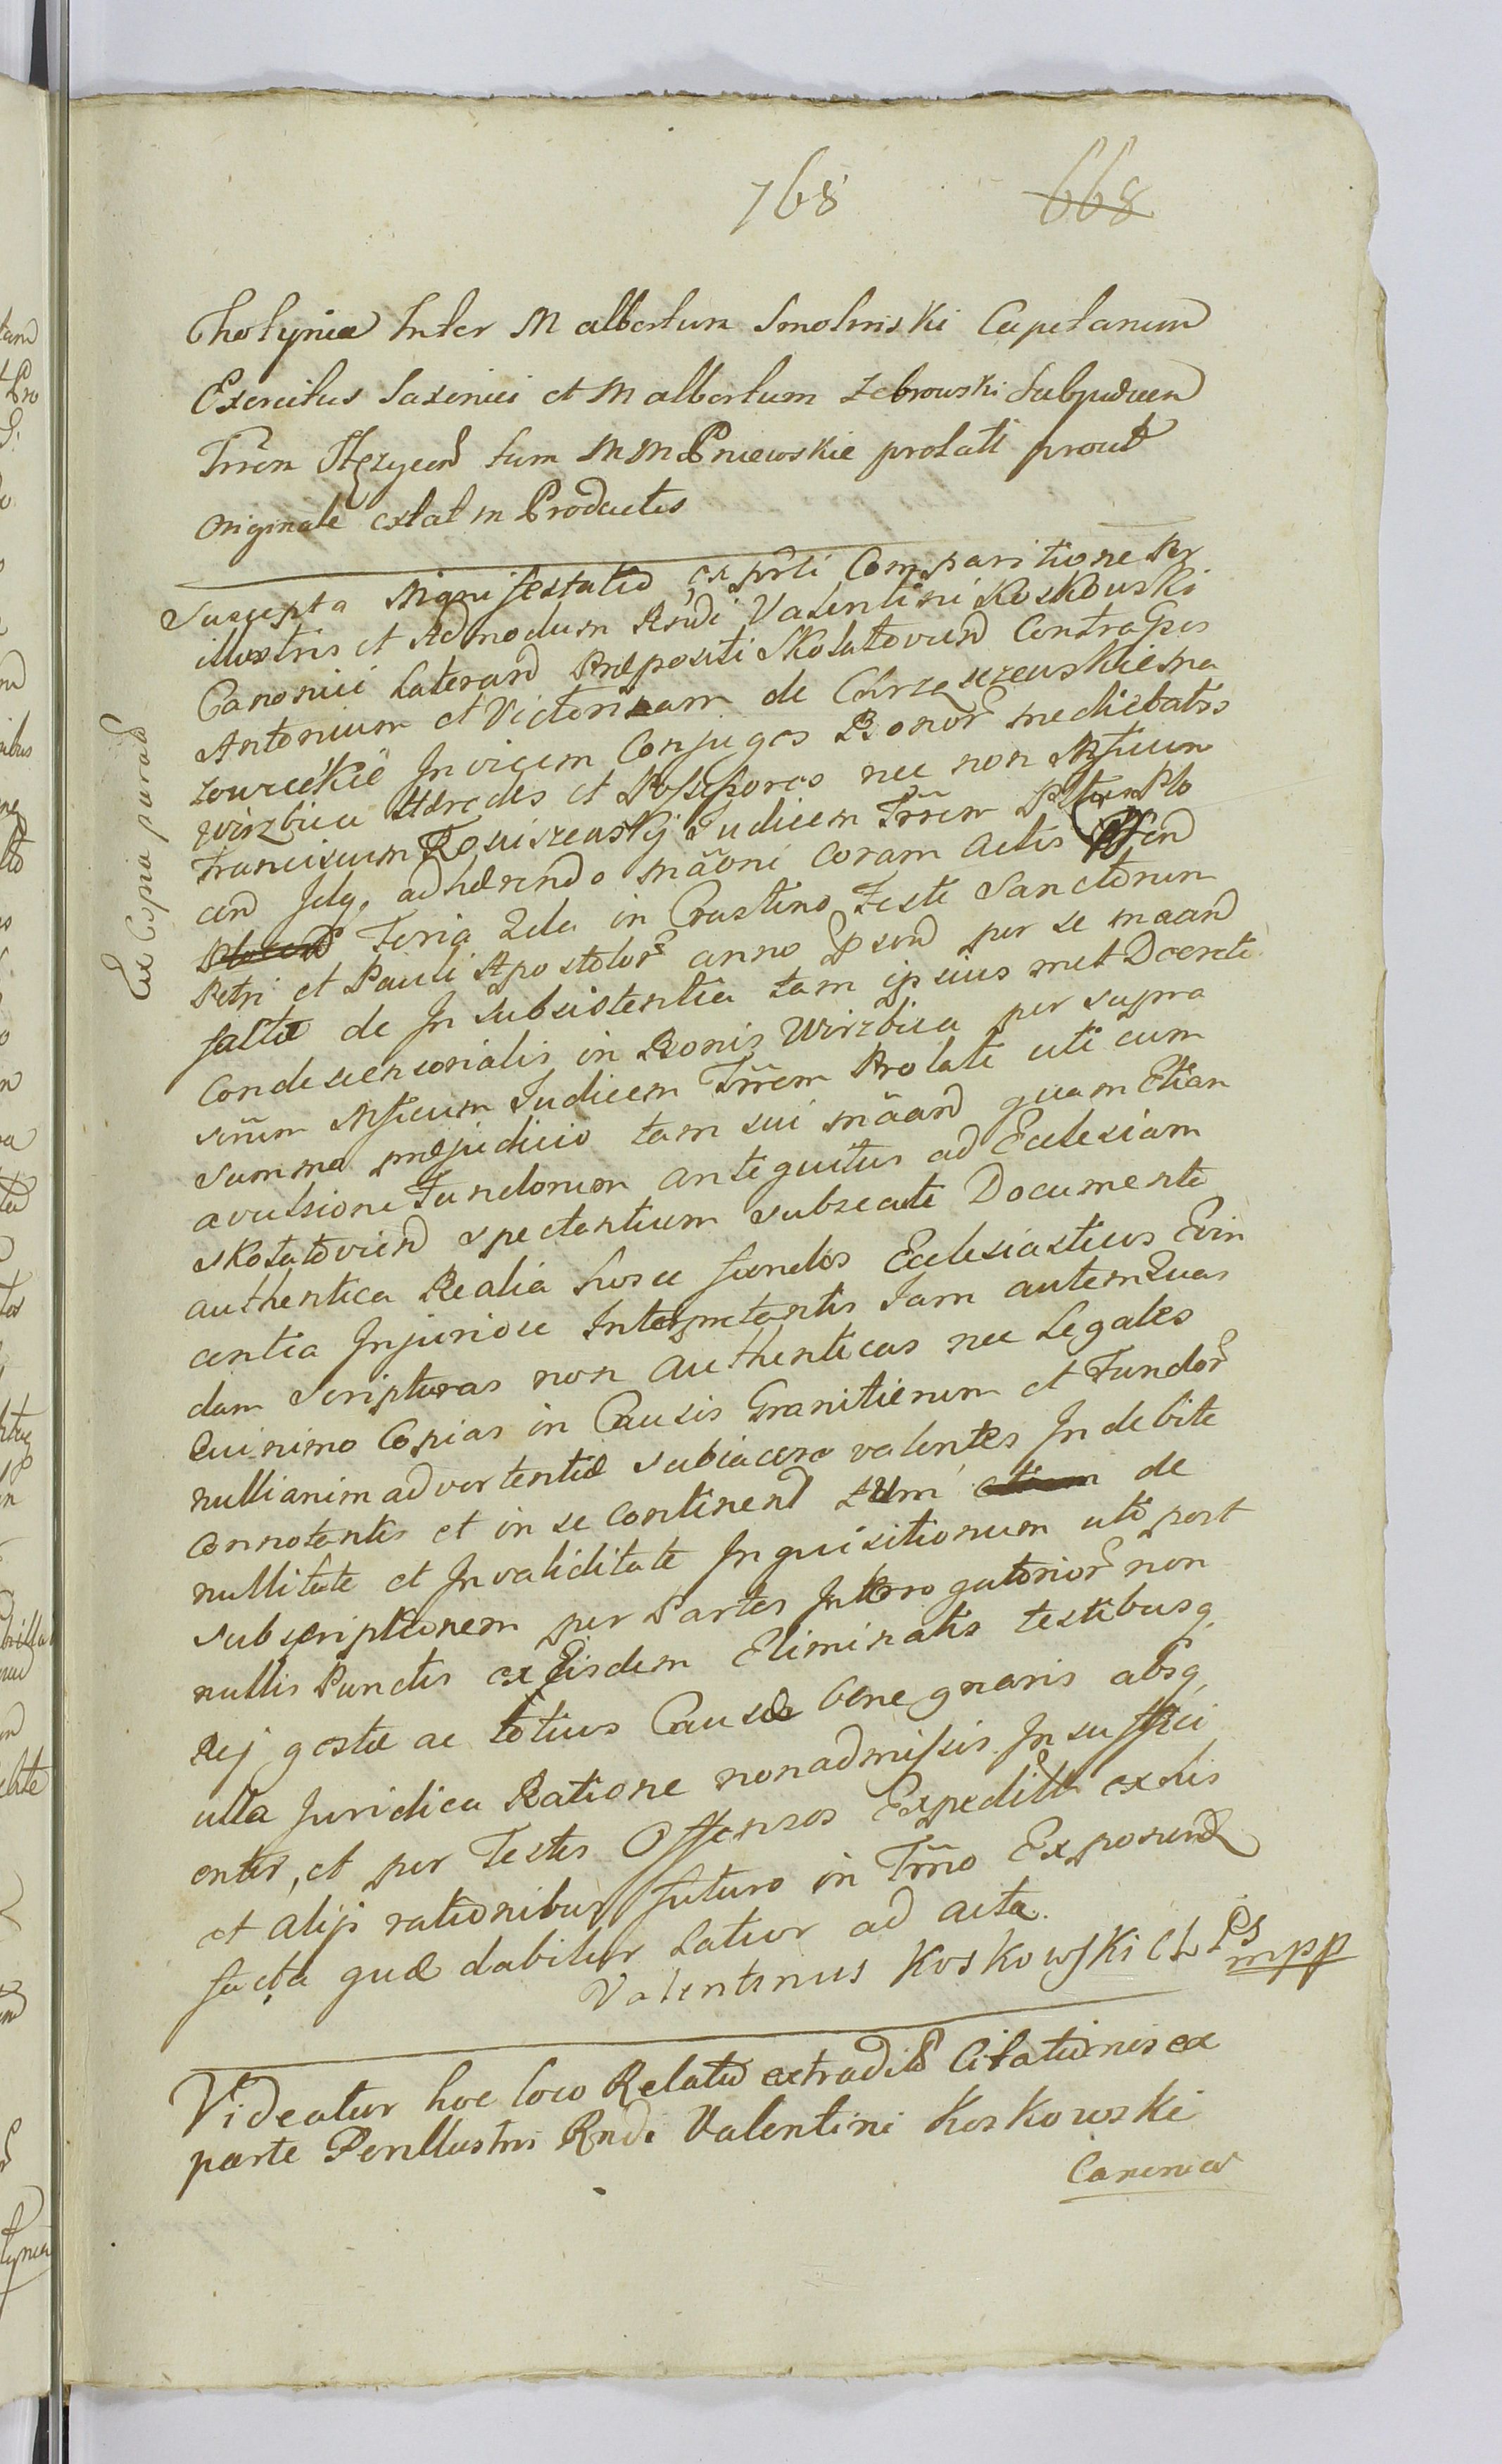 768 668
Tholynia Inter M Albertum Smolinski Capitanum
Exercitus Saxonici et M Albertum Zebrowski Subjudicem
Trrem tum MM Pniewskie prolati prout
Originale extat in Productis
Ex Copia parata
Suscepta Manifestatio ex prti Comparitione Per
illustris et Admodum Rndi Valentini Koskowski
Canonici Lateran Præpositi Skołatovien Contra Gsos
Antonium et Victoriam de Chrzączewskie Ma
zowieckie Invicem Conjuges Bonor medietatis
Wirzbica Hæredes et Possessores nec non Mficum
Franciscum Judicem Trrem
cen adhærendo mãoni coram actis
Feria 2da in Crastino Festi Sanctorum
Petri et Pauli Apostolor anno Psen per se maan
factæ de In Subsistentia tam ipsius met Decreti
Condescensorialis in Bonis Wirzbica per supra
Mficum Judicem Trrem Prolati uti cum
summo præjudicio tam sui mãan quam Etiam
avulsione Fundorum antiquitus ad Ecclesiam
Skołatovien spectantium subsecuti Documenta
authentica Realia hosce fundos Ecclesiasticos Evin
centia Injuriose Interpretantis Jam autem Quas
dam Scripturas non authenticas nec Legales
Quinimo Copias in Causis Granitierum et Fundor
nulli animadvertentiæ subiacere valentes Indebite
Connotantis et in se Continen tum etiam de
nullitate et Invaliditate Inquisitionum uti post
subscriptionem per Partes Interrogatorior non
nullis Punctis ex Eisdem Eliminatis testibusq,
Rej gestæ ac totius Causæ bene gnaris absq,
ulla Juridica Ratione non admissis Insuffici
enter, et per Testes Offensos Expedita ex his
et alijs rationibus futuro in Trmo Exponend
facta quæ dabitur Latior ad acta.
Valentinus Koskowski C L Ps
mpp
Videatur hoc loco Relatio extradit Citationis ex
parte Perillustris Rndi Valentini Koskowski
Canonici